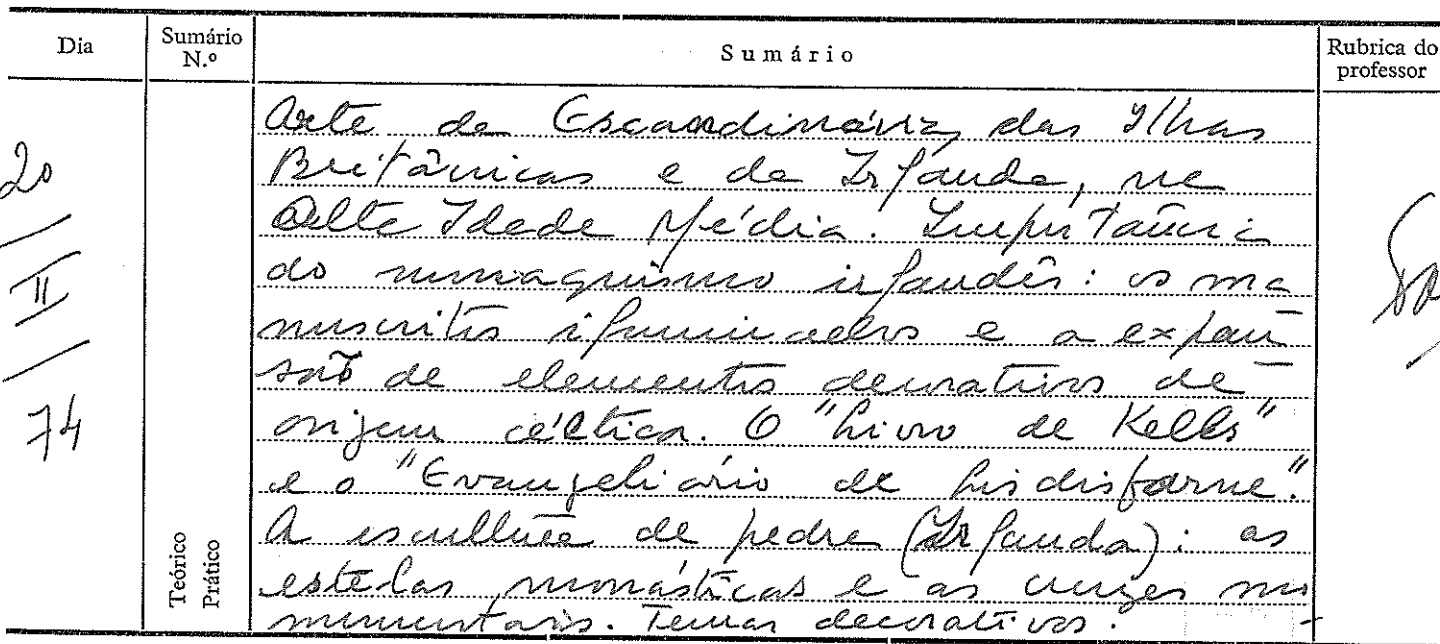 Dia
Sumário N.º
Sumário
Rubrica do professor
20
II
74
Teórico
Prático
Arte da Escandinávia, das Ilhas
Britânicas e da Irlanda, na
Alta Idade Média. Importância
do monaquismo irlandês: os ma
nuscritos iluminados e a expan
são de elementos decorativos de
origem céltica. O "Livro de Kells"
e o "Evangeliário de Lindisfarne".
A escultura de pedra (Irlanda): as
estelas monásticas e as cruzes mo
numentais. Temas decorativos.